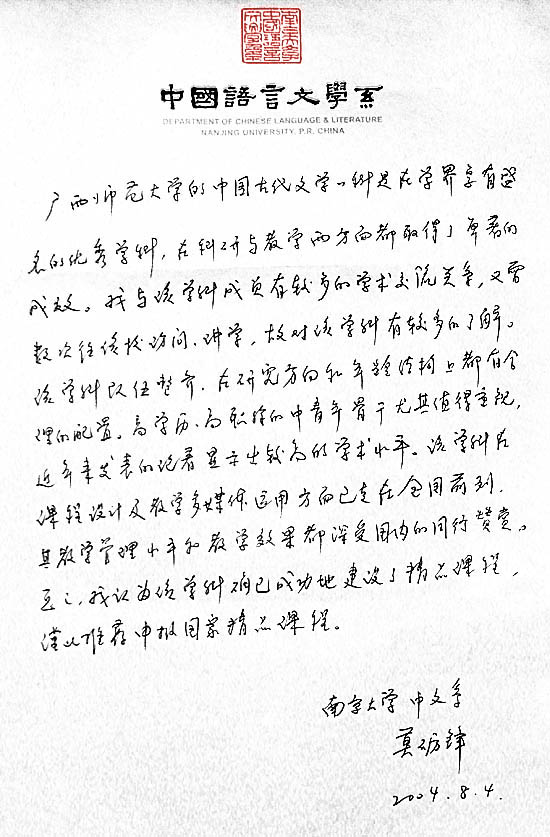 南京大學中國語言文學系
中國語言文學系
DEPARTMENT OF CHINESE LANGUAGE & LITERATURE
NANJING UNIVERSITY, P.R. CHINA
广西师范大学的中国古代文学学科是在学界享有盛
名的优秀学科，在科研与教学两方面都取得了卓著的
成效。我与该学科成员有较多的学术交流关系，又曾
数次往该校访问、讲学，故对该学科有较多的了解。
该学科队伍整齐，在研究方向和年龄结构上都有合
理的配置。高学历、高职称的中青年骨干尤其值得重视，
近年来发表的论著显示出较高的学术水平。该学科在
课程设计及教学多媒体运用方面已走在全国前列，
其教学管理水平和教学效果都深受国内的同行赞赏。
总之，我认为该学科确已成功地建设了精品课程，
谨此推荐申报国家精品课程。
南京大学中文系
莫砺锋
2004.8.4.